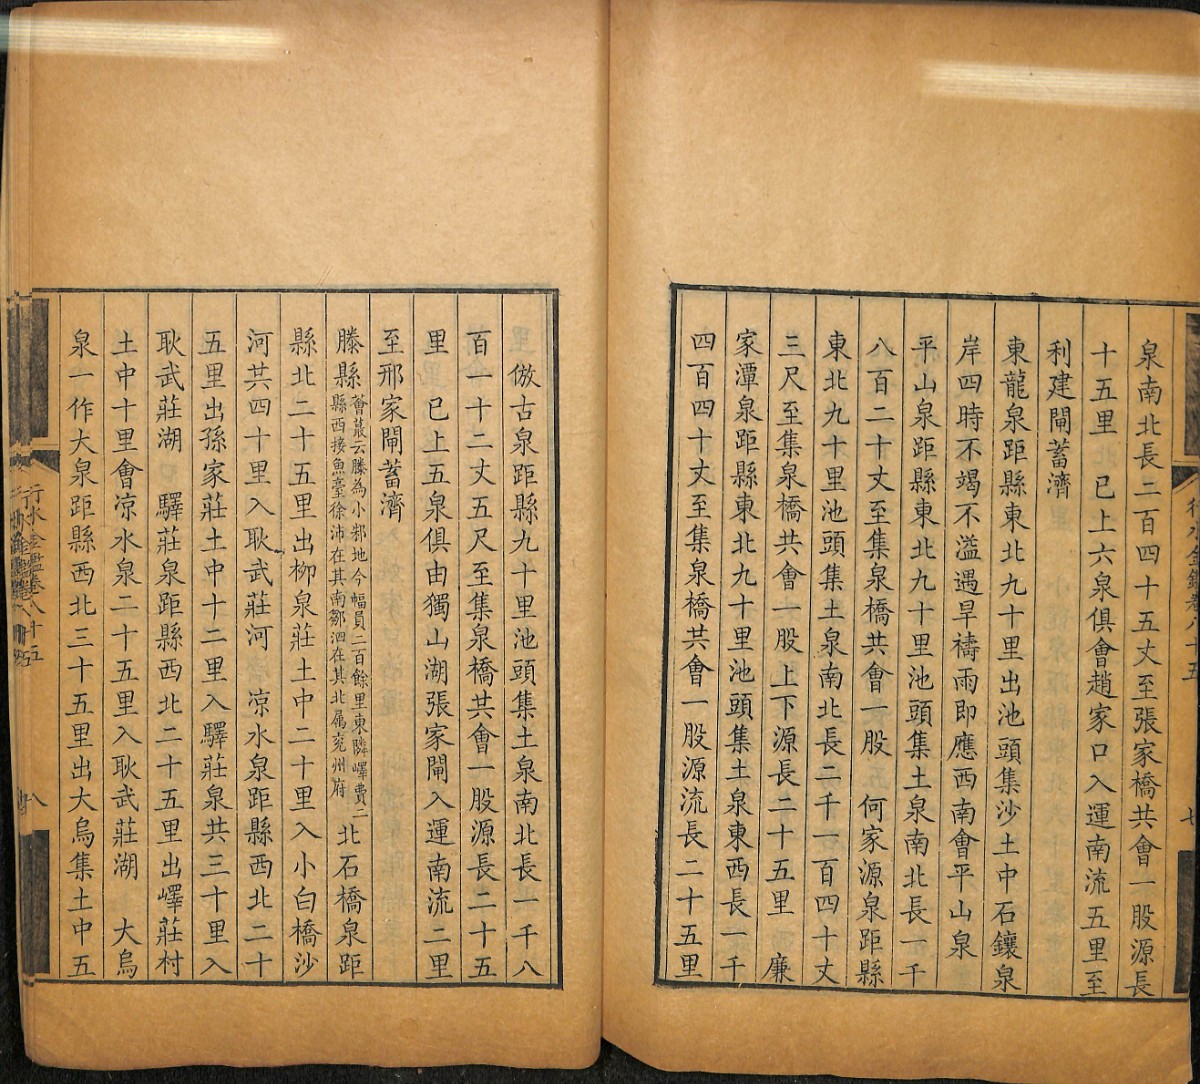 泉南北長二百四十五丈至張家橋共會一股源長
十五里　已上六泉俱會趙家口入運南流五里至
利建閘蓄濟
東龍泉距縣東北九十里出池頭集沙土中石鑲泉
岸四時不竭不溢遇旱禱雨即應西南會平山泉
平山泉距縣東北九十里池頭集土泉南北長一千
八百二十丈至集泉橋共會一股　何家源泉距縣
東北九十里池頭集土泉南北長二千一百四十丈
三尺至集泉橋共會一股上下源長二十五里　廉
家潭泉距縣東北九十里池頭集土泉東西長一千
四百四十丈至集泉橋共會一股源流長二十五里
倣古泉距縣九十里池頭集土泉南北長一千八
百一十二丈五尺至集泉橋共會一股源長二十五
里　已上五泉俱由獨山湖張家閘入運南流二里
至邢家閘蓄濟
滕縣薈蕞云滕為小邾地今幅員二百餘里東隣嶧費二縣西接魚臺徐沛在其南鄒泗在其北属兖州府　北石橋泉距
縣北二十五里出柳泉莊土中二十里入小白橋沙
河共四十里入耿武莊河　凉水泉距縣西北二十
五里出孫家莊土中十二里入驛莊泉共三十里入
耿武莊湖　驛莊泉距縣西北二十五里出嶧莊村
土中十里會凉水泉二十五里入耿武莊湖　大烏
泉一作大泉距縣西北三十五里出大烏集土中五
行水金鑑卷八十五
八